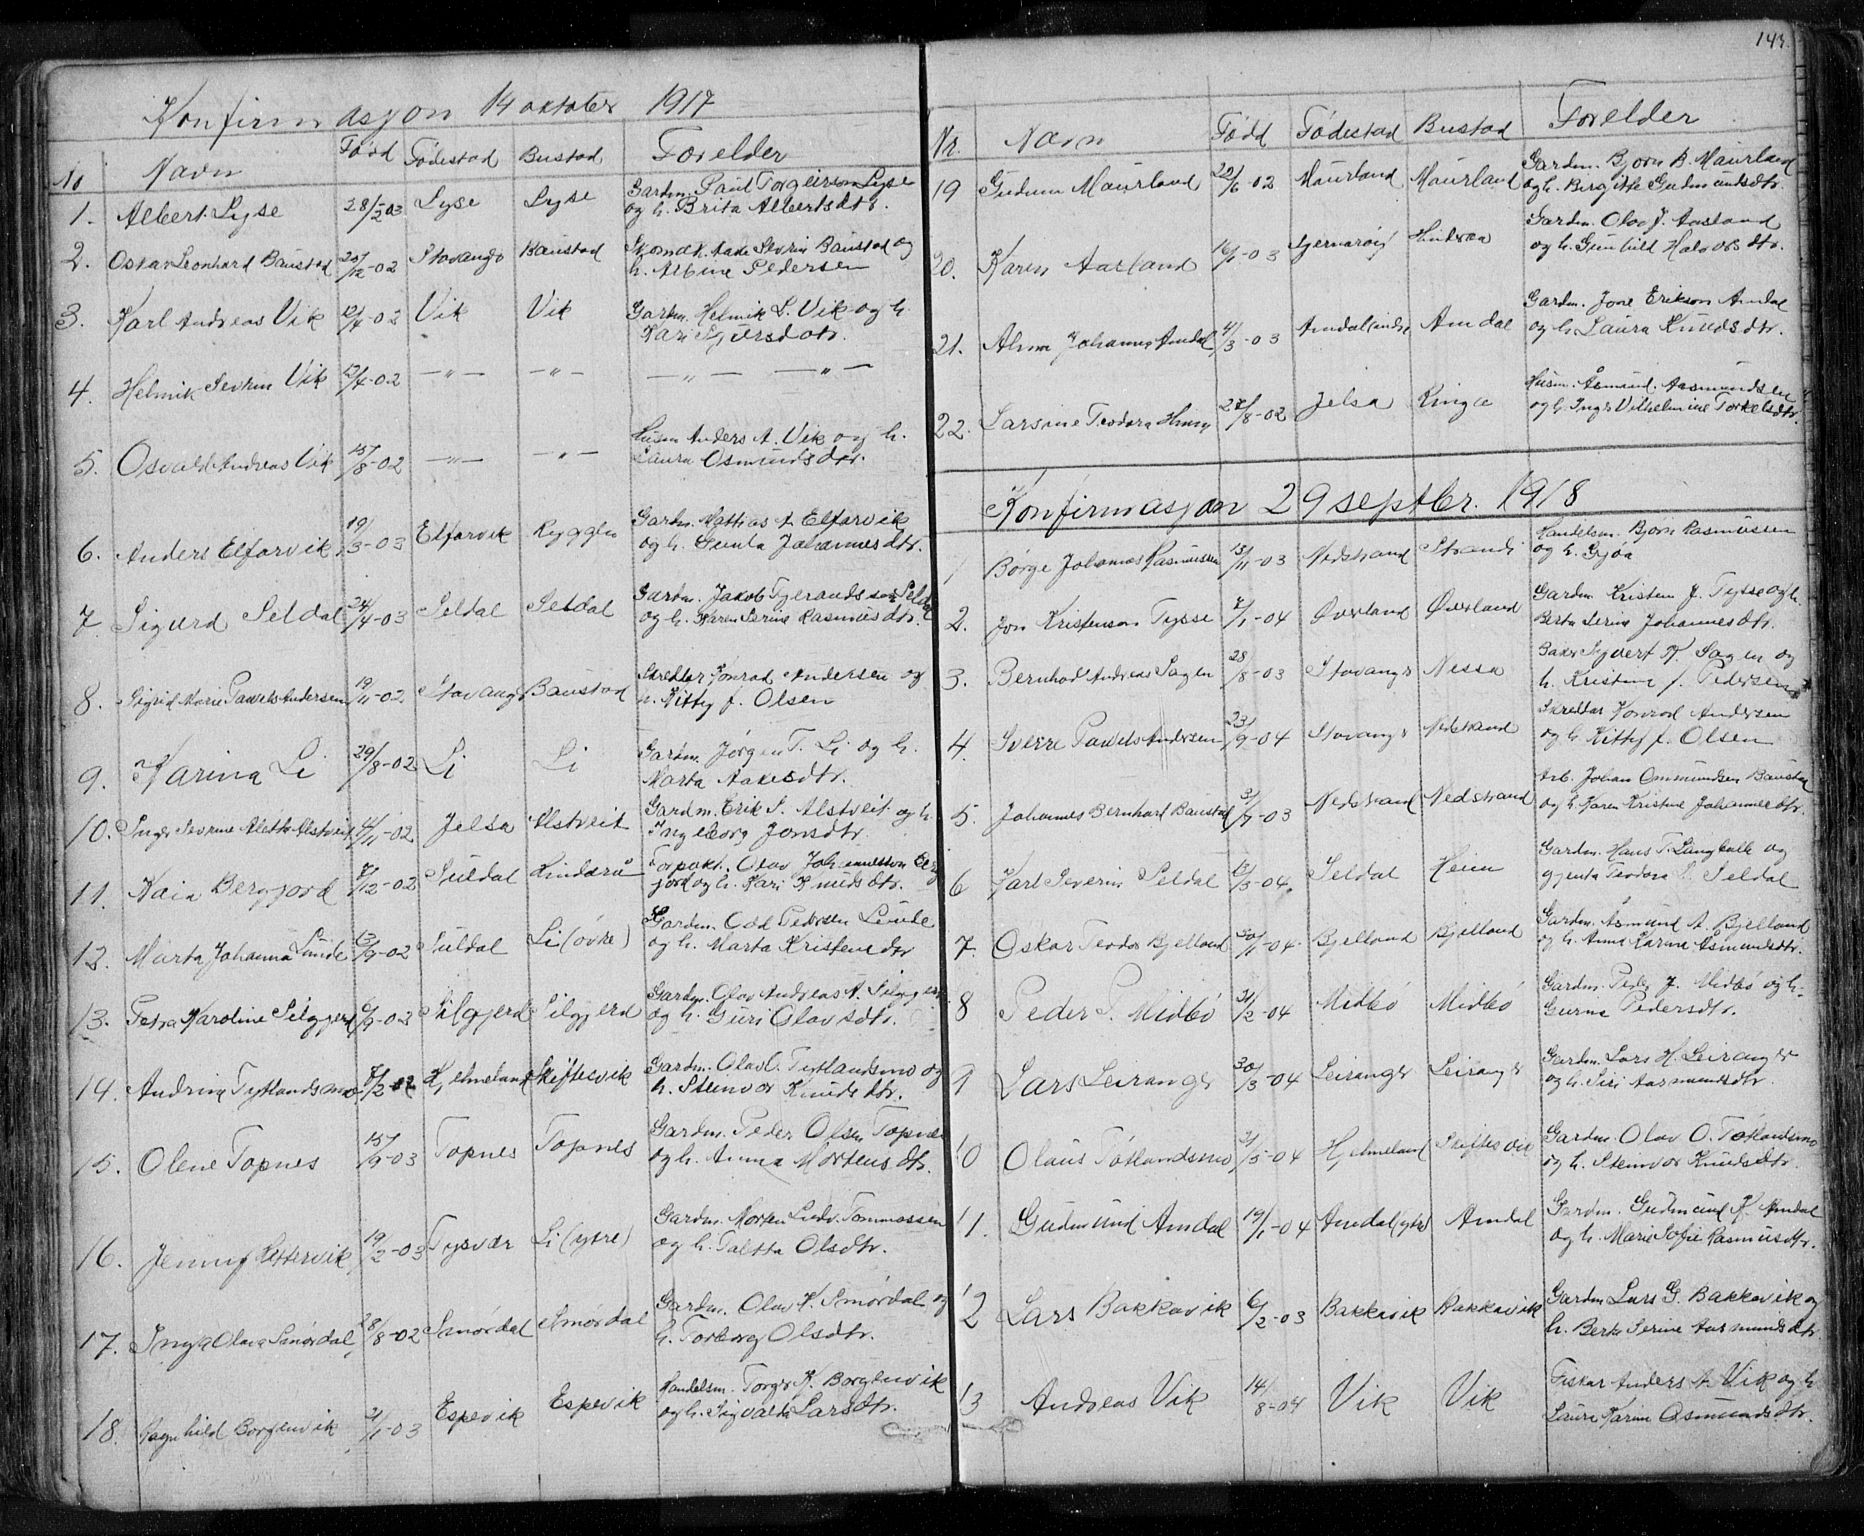 Konfirmasjon 14 oktober 1917
No Navn Född Födestad Bustad Forelder
1. Albert Lyse 28/2-03 Lyse Lyse Gardm. Paul Torgeirson Lyse
og h. Brita Albertsdtr.
2. Oskar Leonhard Baustad 20/12-02 Stavanger Baustad Severin Baustad og
h. Albine Pedersen
3. Karl Andreas Vik 12/4-02 Vik Vik Gardm. Helmik L. Vik og h.
Kari Sjursdotr.
4. Helmik Severin Vik 12/4-02 —„— —„— —„— —„—
5. Osvald Andreas Vik 15/8-02 —„— —„— Husm Anders A. Vik og h.
Laura Osmundsdtr.
6. Anders Elfarvik 19/3-03 Elfarvik Ryggen Gardm. Mattias A. Elfarvik
og h. Gunla Johannesdtr.
7. Sigurd Seldal 24/4-03 Seldal Seldal Gardm. Jakob Tjerandsson Seldal
og h. Karen Serine Rasmusdtr.
8. Sigrid Marie Pawels Andersen 19/11-02 Stavanger Baustad Skreddar Konrad Andersen og
h. Kitty f. Olsen
9. Karina Li 29/8-02 Li Li Gardm. Jørgen T. Li og h.
Marta Aakesdtr.
10. Inger Severine Alette Alstveit 4/11-02 Jelsa Alstveit Gardm. Erik S. Alstveit og h.
Ingeborg Jonsdtr.
11. Kaia Bergfjord 7/12-02 Suldal Hinderå Forpakt. Olav Johannesson Berg
fjord og h. Kari Knudsdtr.
12. Marta Johanna Lunde 13/9-02 Suldal Li (øvre) Gardm. Odd Pedersen Lunde
og h. Marta Kristensdtr
13. Petra Karoline Silgjerd 6/9-02 Silgjerd Silgjerd Gardm. Olav Andreas N. Silgjerd
og h. Guri Olavsdtr.
14. Andrine Tytlandsmo 7/2-02 Hjelmeland Skiftesvik Gardm. Olav O. Tytlandsmo og
h. Steinvor Knudsdtr.
15. Olene Topnes 15/9-03 Topnes Topnes Gardm. Peder Olsen Topnes
og h. Anna Mortensdtr.
16. Jenny 19/2-03 Tysvær Li (ytre) Gardm. Morten Ludv. Tommassen
og h. Taletta Olsdtr.
17. Inga Olava Smördal 28/8-02 Smördal Smördal Gardm. Olav K. Smördal og
h. Torborg Olsdtr.
18. Ragnhild Borgenvik 2/1-03 Espevik Espevik Handelsm. Torger K. Borgenvik
og h. Sigvalda Larsdtr.
143.
Nr. Navn Född Födestad Bustad Forelder
19 Gudrun Maurland 20/6-02 Maurland Maurland Gardm. Bjorn B. Maurland
og h. Bergitte Gudmundsdtr.
20. Karen Aasland 16/1-03 Hinderaa Gardm. Olav J. Aasland
og h. Gunhild Halvorsdtr.
21. Alma Johanna Amdal 4/3-03 Amdal Amdal Gardm. Jone Erikson Amdal
og h. Laura Knudsdtr.
22. Larsine Teodora 27/8-02 Jelsa Ringa Husm. Asmund Aasmundsen
og h. Inger Vilhelmine Torkelsdtr.
Konfirmasjon 29 septbr. 1918
1 Børge Johannes Rasmussen 13/11-03 Nedstrand Strand Handelsm. Bjorn Rasmussen
og h. Gjøa
2. Jon Kristenson Tysse 7/1-04 Øverland Øverland Gardm. Kristen J. Tysse og h.
Berta Serine Johannesdtr.
3. Bernhard Andreas Sagen 28/8-03 Stavanger Nessa Bakar Syvert K. Sagen og
h. Kristine f. Pedersen
4. Sverre Pawels Andersen 23/9-04 Stavanger Nedstrand Skreddar Konrad Andersen
og h. Kitty f. Olsen
5. Johannes Bernhart Baustad 3/7-03 Nedstrand Nedstrand Arb. Johan Ommundsen Baustad
og h. Karen Kristine Johannesdtr.
6 Karl Severin Seldal 12/3-04. Seldal Heim Gardm. Hans T. og
gjenta Teodora S. Seldal
7. Oskar Teodor Bjelland 30/1-04. Bjelland Bjelland Gardm. Asmund A. Bjelland
og h. Anna Karine Asmundsdtr.
8 Peder P. Midbö 21/2-04 Midbö Midbö Gardm. Peder J. Midbö og h.
Gurine Pedersdtr.
9 Lars Leiranger 30/3-04 Leiranger Leiranger Gardm. Lars H. Leiranger
og h. Siri Aasmundsdtr.
10 Olaus Tötlandsmo 21/5-04 Hjelmeland Skiftesvik Gardm. Olav O. Tötlandsmo
og h. Steinvor Knudsdtr.
11. Gudmund Amdal 19/1-04 Amdal (ytre) Amdal Gardm. Gudmund K. Amdal
og h. Marie Sofie Rasmusdtr.
12 Lars Bakkavik 6/2-03 Bakkavik Bakkavik Gardm Lars G. Bakkavik og
h. Berta Serine Aasmundsdtr.
13 Andreas Vik 14/8-04 Vik Vik Fiskar Anders A. Vik og h
Laura Karine Osmundsdtr.